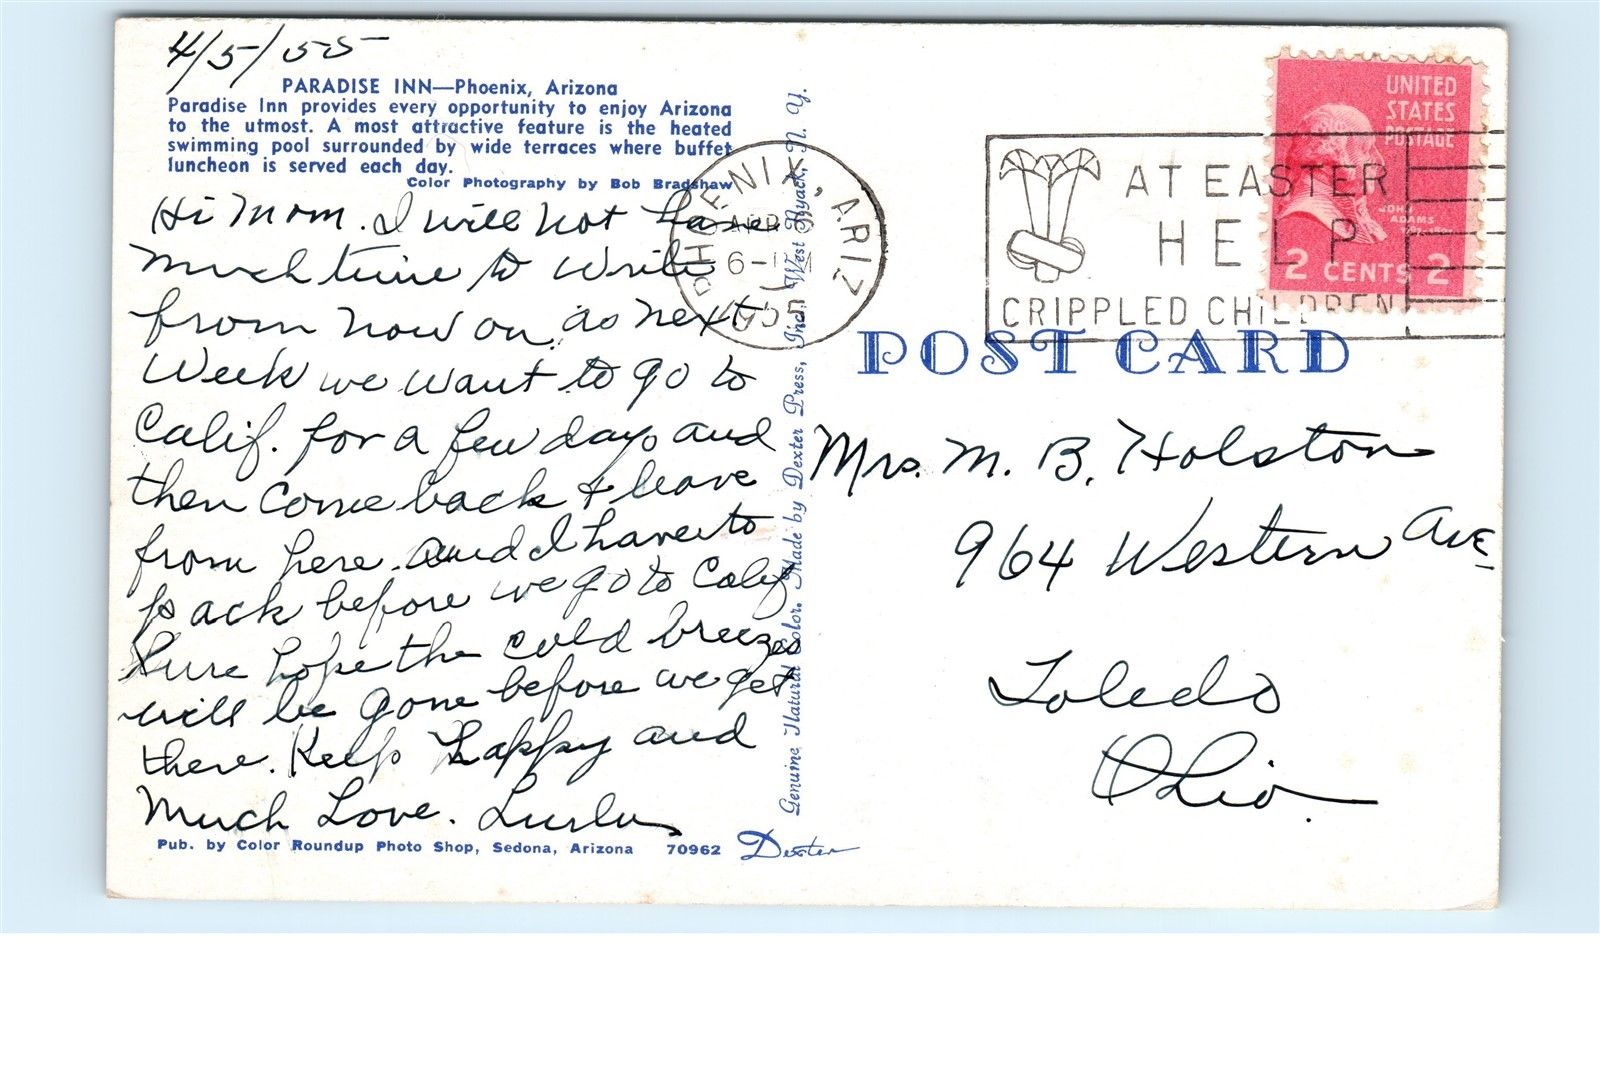 4/5/55
PARADISE INN—Phoenix, Arizona
Paradise Inn provides every opportunity to enjoy Arizona
to the utmost. A most attractive feature is the heated
swimming pool surrounded by wide terraces where buffet
luncheon is served each day.
Color Photography by Bob Bradshaw
Hi Mom. I will not have
much time to write
from now on, as next
Week we want to go to
Calif. for a few days and
then come back & leave
from here. and I have to
pack before we go to Calif
Sure hope the cold breezes
will be gone before we get
there. Keep happy and
Much Love.
Pub. by Color Roundup Photo Shop, Sedona, Arizona 70962
Dexter
Genuine Natural Color. Made by Dexter Press, Inc., West Nyack, N. Y.
PHOENIX, ARIZ
APR
6-PM
1955
AT EASTER
HELP
CRIPPLED CHILDREN
UNITED
STATES
POSTAGE
JOHN
ADAMS
2 CENTS 2
POST CARD
Mrs. M. B. Holston
964 Western Ave
Toledo
Ohio.